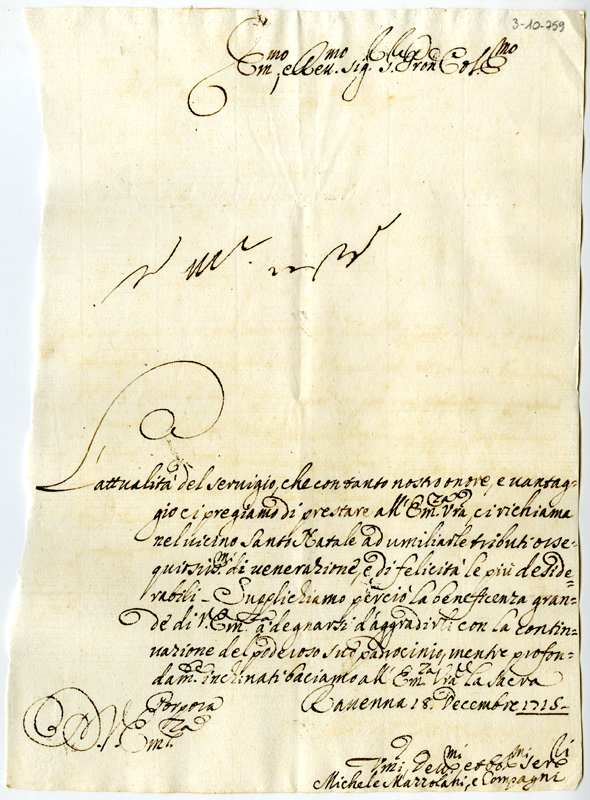 3-10-759
Em.mo e Reu. sig. P.ron Col.mo
L'attualità del seruigio, che con tanto nostro onore, e uantag=
gio ci pregiamo di prestare all' Em.za Vra ci richiama
nel uicino Santo Natale ad umiliarle tributi osse=
quiosis.mi di uenerazione, e di felicità le più deside=
rabili. Supplichiamo perciò la beneficenza gran=
de di V. Em.za a degnarsi d'aggradirli con la contin=
uazione del poderoso suo padrocinio, mentre profon=
dam.e inclinati baciamo all' Em.za Vra la Sacra
Porpora Rauenna 18. Decembre 1715.
D. V. Em.za
Vmi. Deu.mi et Ob.mi Ser.li
Michele Mazzolani, e Compagni